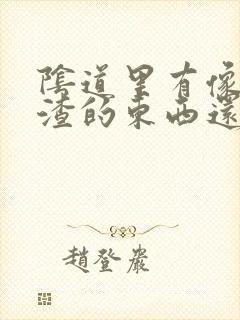 陰道里有像
渣的東西還
趙登嚴